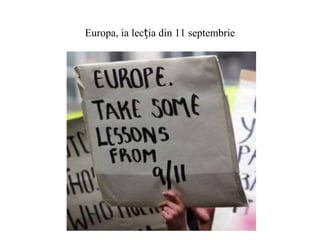 Europa, ia lecția din 11 septembrie
EUROPE.
TAKE SOME
LESSONS
FROM
9/11
WHO